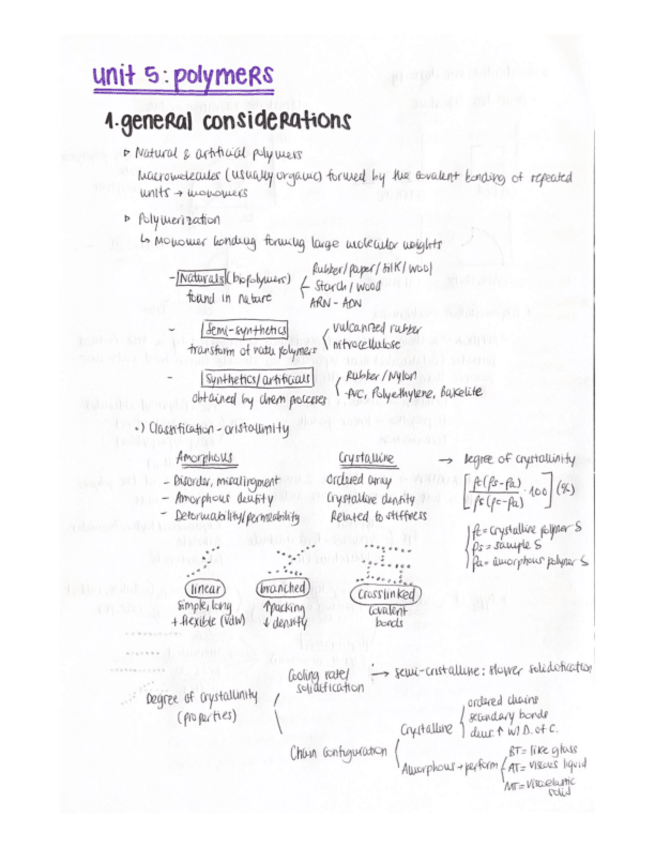 unit 5: polymers
1. general considerations
▷ Natural & artificial polymers
Macromolecules (usually organic) formed by the covalent bonding of repeated
units → monomers
▷ Polymerization
↳ Monomer bonding forming large molecular weights
- Naturals (biopolymers)
found in nature
Rubber/paper/silk/wool
Starch/wood
ARN - ADN
- Semi-synthetics
transform of natu polymers
vulcanized rubber
nitrocellulose
- Synthetics/artificials
obtained by chem processes
Rubber/Nylon
PVC, Polyethylene, bakelite
·) Classification - cristallinity
Amorphous
- Disorder, misalingment
- Amorphous density
- Deformability/permeability
Crystalline
Ordered array
Crystalline density
Related to stiffness
→ Degree of crystallinity
[ρc(ρs-ρa) / ρs(ρc-ρa) · 100] (%)
ρc = crystalline polymer S
ρs = sample S
ρa = amorphous polymer S
linear
simple, long
+ flexible (vdw)
branched
↑packing
↓ density
crosslinked
covalent
bonds
Degree of crystallinity
(properties)
Cooling rate/
solidification
→ semi-cristalline: slower solidification
Chain configuration
Crystalline
ordered chains
secondary bonds
dens. ↑ w/ D. of C.
Amorphous → perform
BT = like glass
AT = viscous liquid
MT = viscoelastic
solid